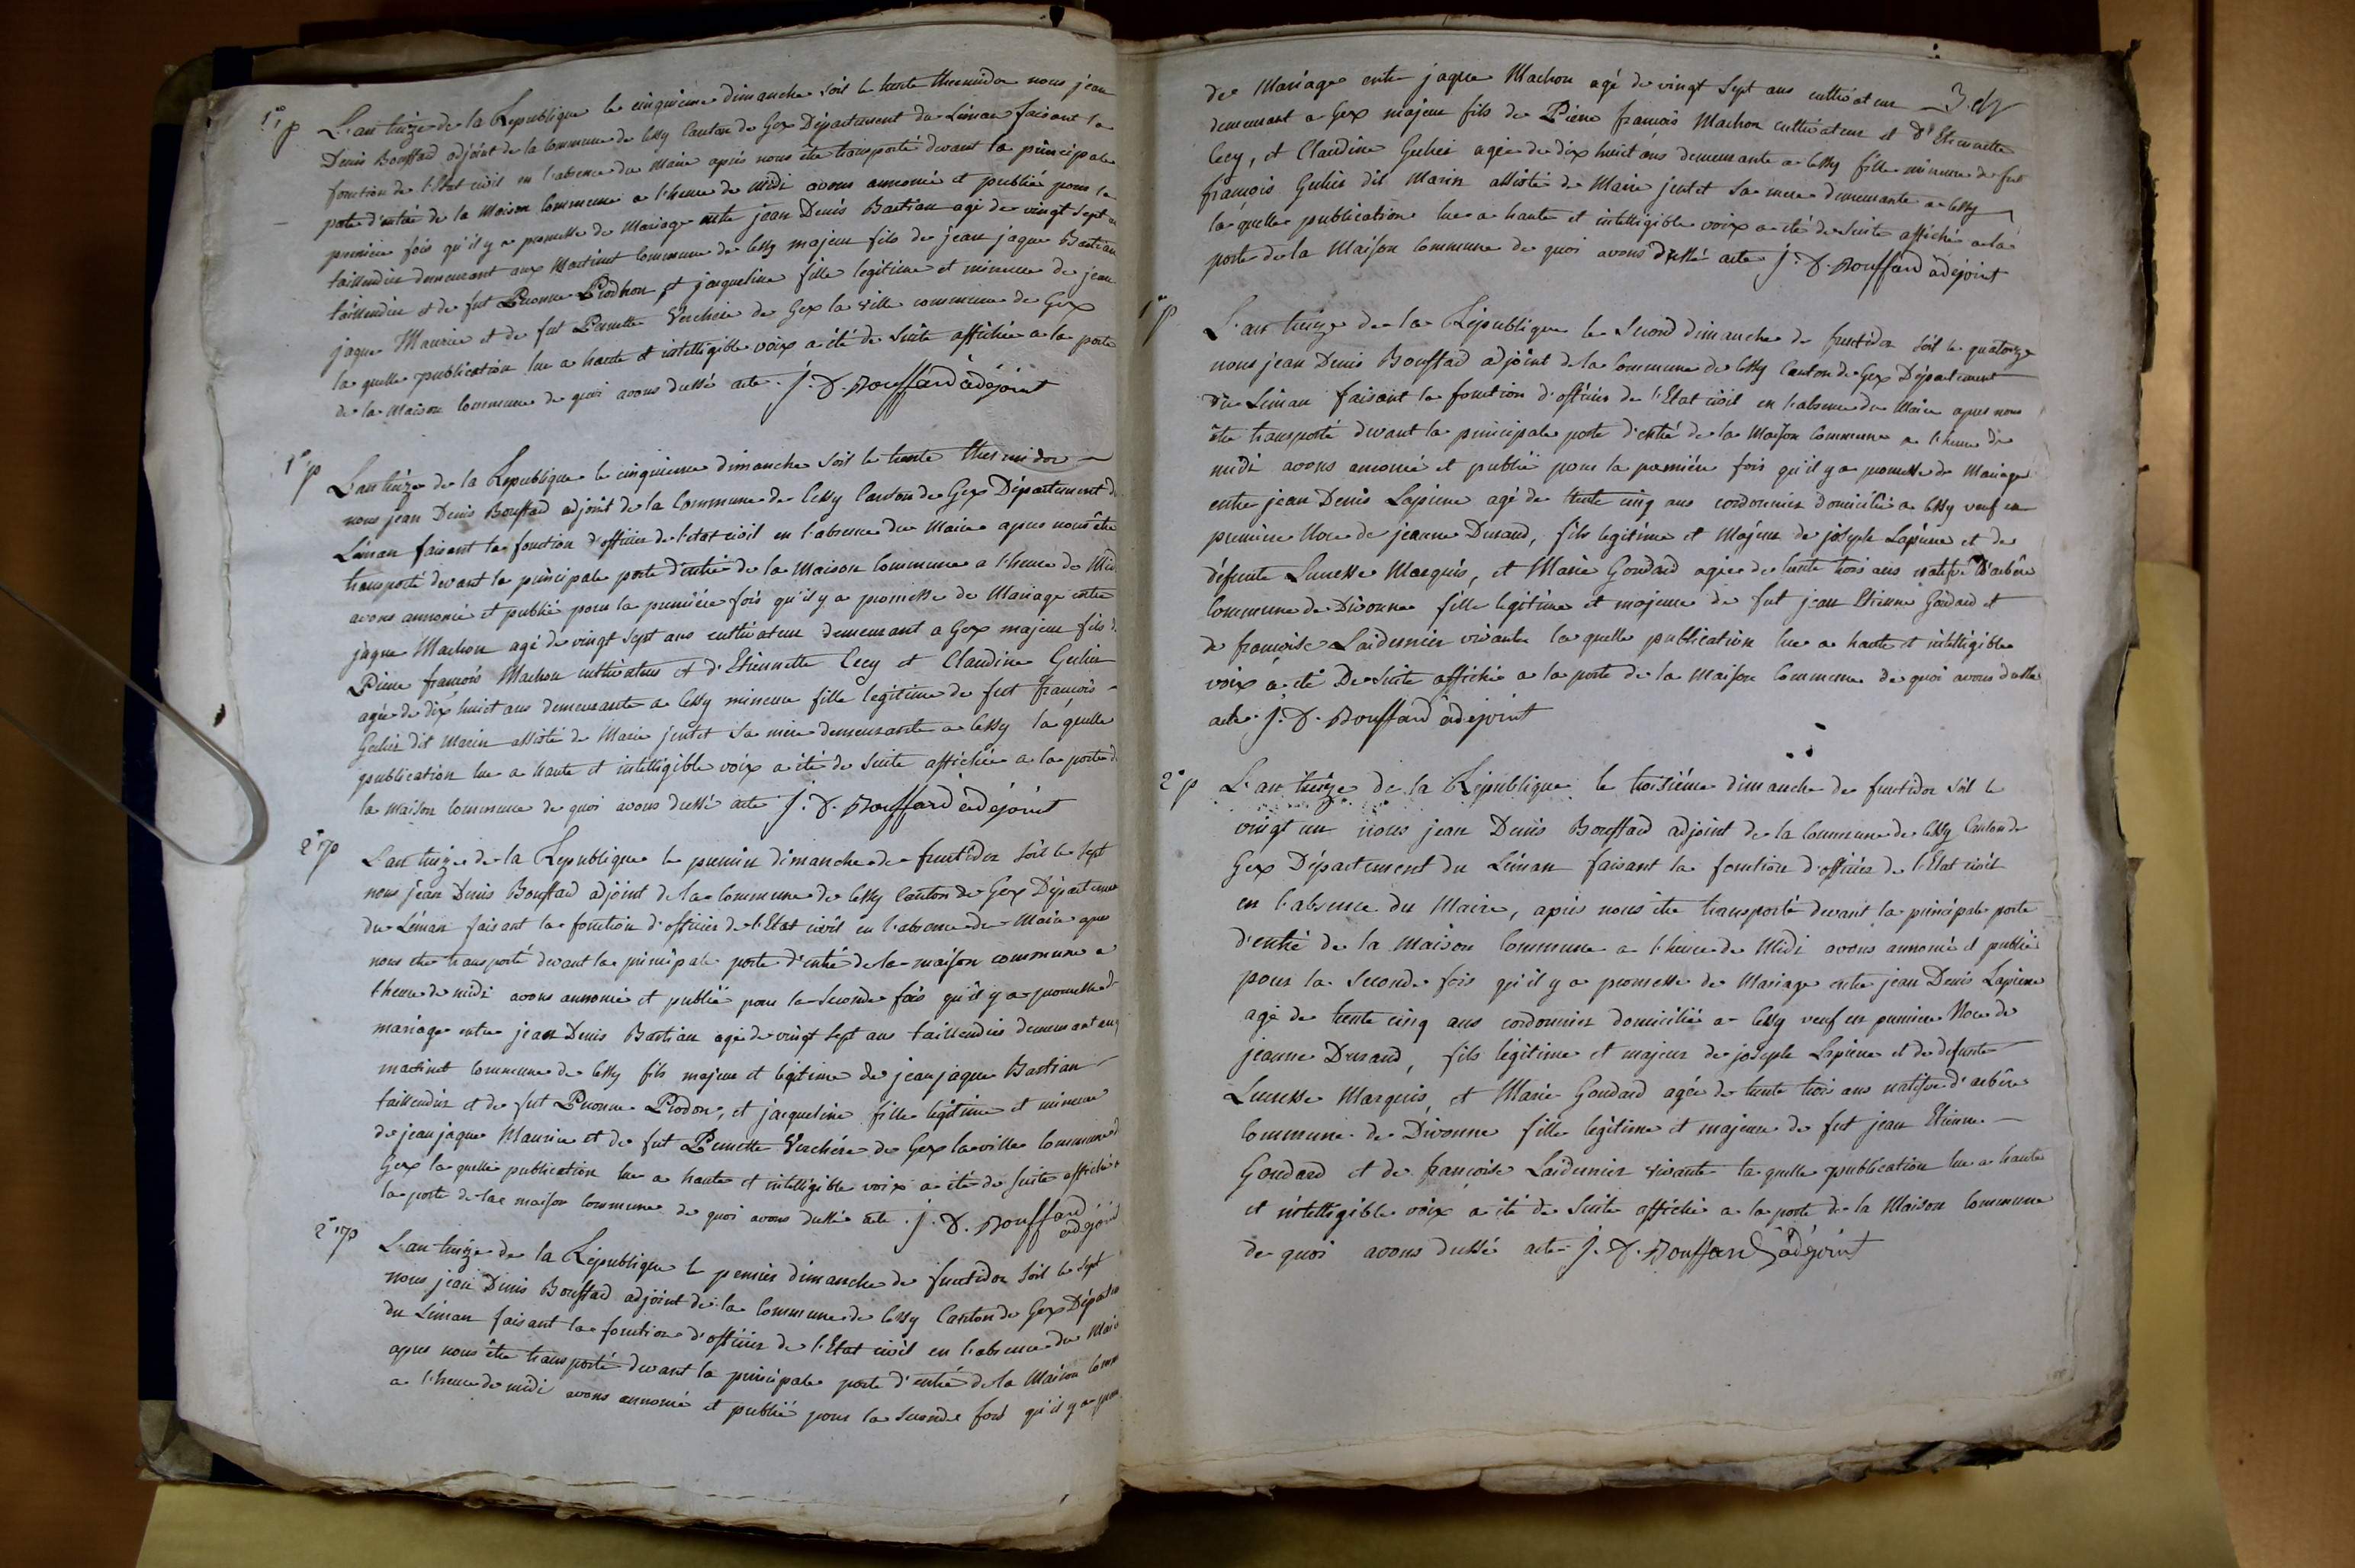 1re p
L'an treize de la Republique le cinquieme dimanche soit le trente thermidor nous jean
Denis Bouffard adjoint de la Commune de Cessy Canton de Gex Département du Léman faisant la
fonction de l'Etat civil en l'absence du Maire après nous être transporté devant la principale
porte d'entrée de la Maison Commune a l'heure de Midi avons annoncé et publié pour la
premiere fois qu'il y a promesse de Mariage entre jean Denis Bastian agé de vingt sept
taillendier demeurant aux Martinet Commune de Cessy majeur fils de jean jaque Bastian
taillendier et de fut Pernonne Prodhon, et jaqueline fille legitime et mineure de jean
jaque Maurice et de fut Pernette Verchère de Gex la ville commune de Gex
la quelle publication lue a haute et intelligible voix a été de suite affichée a la porte
de la Maison Commune de quoi avons dressé acte. J. D. Bouffard adejoint
1re p
L'an treize de la Republique le cinquieme dimanche soit le trente thermidor
nous jean Denis Bouffard adjoint de la Commune de Cessy Canton de Gex Département
Léman faisant la fonction d'officier de l'etat civil en l'absence du Maire apres nous être
transporté devant la principale porte d'entrée de la Maison Commune a l'heure de Midi
avons annoncé et publié pour la premiére fois qu'il y a promesse de Mariage entre
jaque Machon agé de vingt sept ans cultivateur demeurant a Gex majeur fils
Pierre françois Machon cultivateur et d'Etiennette Cecy et Claudine Gulier
agée de dix huict ans demeurante a Cessy mineure fille legitime de fut françois
Gulier dit Marin assisté de Marie jentet sa mere demeurante a Cessy la quelle
publication lue a haute et intelligible voix a été de suite affichée a la porte
la Maison Commune de quoi avons dressé acte J. D. Bouffard adejoint
2e p
L'an treize de la Republique le premier dimanche de fructidor soit le sept
nous jean Denis Bouffard adjoint de la Commune de Cessy Canton de Gex Département
du Léman faisant la fonction d'officier de l'Etat civil en l'absence du Maire apres
nous etre transporté devant la principale porte d'entrée de la maison commune a
l'heure de midi avons annoncé et publié pour la seconde fois qu'il y a promesse
mariage entre jean Denis Bastian agé de vingt sept ans taillendier demeurant aux
martinet Commune de Cessy fils majeur et legitime de jean jaque Bastian
taillendier et de fut Pernonne Prodon, et jacqueline fille legitime et mineure
de jean jaque Maurice et de fut Pernette Verchére de Gex la ville Commune
Gex la quelle publication lue a haute et intelligible voix a été de suite affichée
la porte de la maison Commune de quoi avons dressé acte. J. D. Bouffard
adejoint
2e p
L'an treize de la République le premier dimanche de fructidor soit le sept
nous jean Denis Bouffard adjoint de la Commune de Cessy Canton de Gex
du Léman faisant la fonction d'officier de l'Etat civil en l'absence du Maire
apres nous être transporté devant la principale porte d'entrée de la Maison
a l'heure de midi avons annoncé et publié pour la seconde fois qu'il y a
3
de Mariage entre jaque Machon agé de vingt sept ans cultivateur
demeurant a Gex majeur fils de Pierre françois Machon cultivateur et d'Etiennette
Cecy, et Claudine Gulier agée de dix huict ans demeurante a Cessy fille mineure de fut
françois Gulier dit Marin assisté de Marie jentet sa mere demeurante a Cessy
la quelle publication lue a haute et intelligible voix a été de suite affiché a la
porte de la Maison Commune de quoi avons dressé acte J. D. Bouffard adejoint
1re p
L'an treize de la République le second dimanche de fructidor soit le quatorze
nous jean Denis Bouffard adjoint de la Commune de Cessy Canton de Gex Département
du Léman faisant la fonction d'officier de l'Etat civil en l'absence du Maire apres nous
être transporté devant la principale porte d'entré de la Maison Commune a l'heure de
midi avons annoncé et publié pour la premiére fois qu'il y a promesse de Mariage
entre jean Denis Lapierre agé de trente cinq ans cordonnier domicilié a Cessy veuf en
premiere Noce de jeanne Durand, fils legitime et Majeur de joseph Lapierre et de
défunte Lucresse Marquis, et Marie Goudard agée de trente trois ans native D'arbère
Commune de Divonne fille legitime et majeure de fut jean Etienne Goudard et
de françoise Laidernier vivante la quelle publication lue a haute et intelligible
voix a été De suite affiché a la porte de la Maison Commune de quoi avons dressé
acte J. D. Bouffard adejoint
2e p
L'an treize de la République le troisiéme dimanche de fructidor soit le
vingt un nous jean Denis Bouffard adjoint de la Commune de Cessy Canton de
Gex Département du Léman faisant la fonction d'officier de l'Etat civil
en l'absence du Maire, après nous être transporté devant la principale porte
d'entré de la Maison Commune a l'heure de Midi avons annoncé et publié
pour la seconde fois qu'il y a promesse de Mariage entre jean Denis Lapierre
agé de trente cinq ans cordonnier domicilié a Cessy veuf en premiere Noce de
jeanne Durand, fils légitime et majeur de joseph Lapierre et de defunte
Lucresse Marquis, et Marie Goudard agée de trente trois ans native d'arbère
Commune de Divonne fille légitime et majeure de fut jean Etienne
Goudard et de françoise Laidernier vivante la quelle publication lue a haute
et intelligible voix a été de suite affiché a la porte de la Maison Commune
de quoi avons dressé acte J. D. Bouffard adejoint